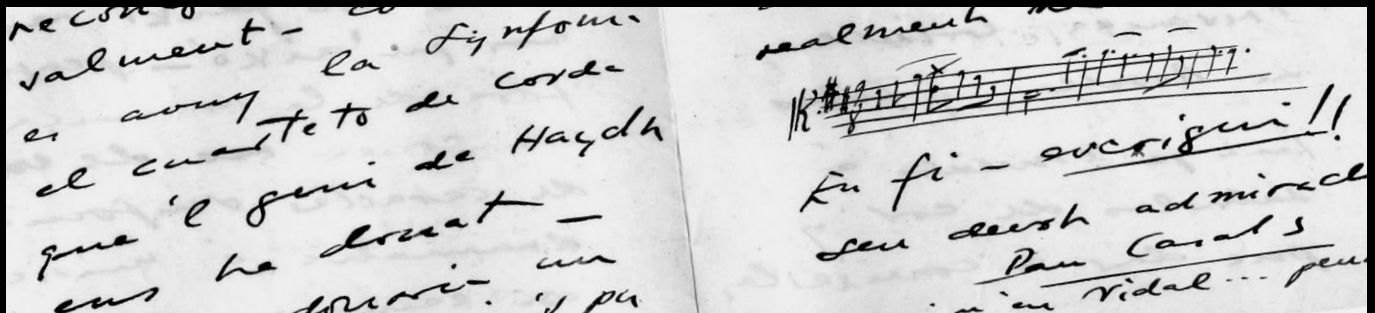 valment -
es avuy la Synfoni
el cuarteto de corda
que 'l geni de Haydn
ens ha donat -
donaria un
realment
En fi - escrigui!!
seu devot admirad
Pau Casals
Vidal...